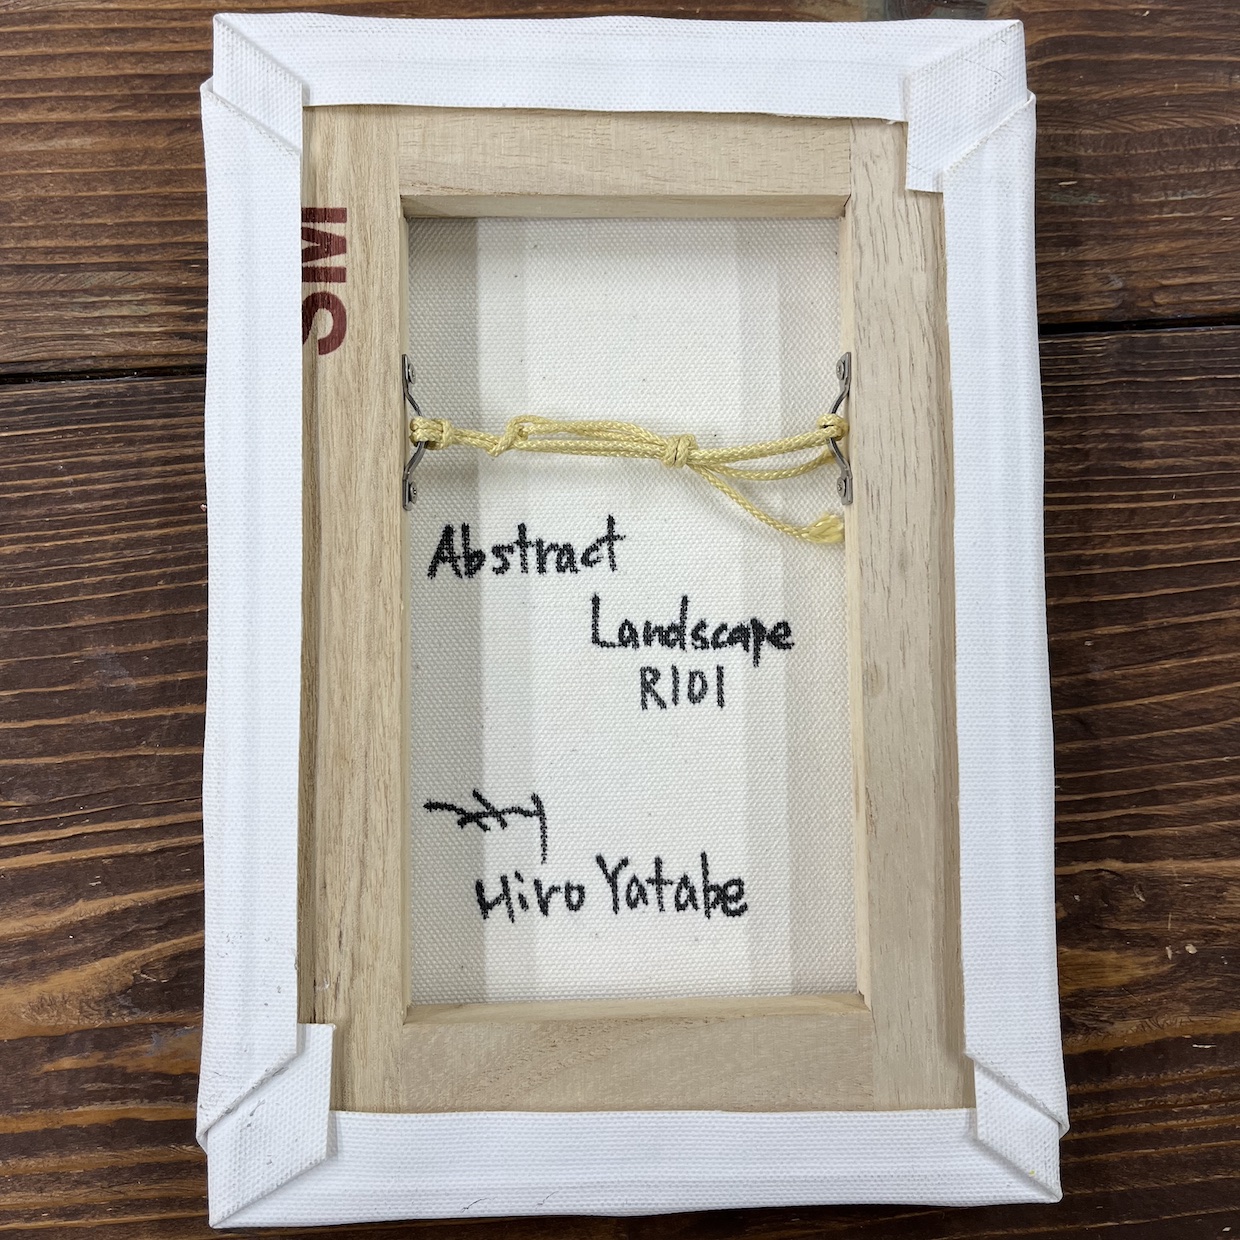 SM
Abstract
Landscape
R101
Hiro Yatabe